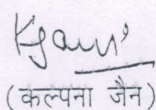 (कल्पना जैन)